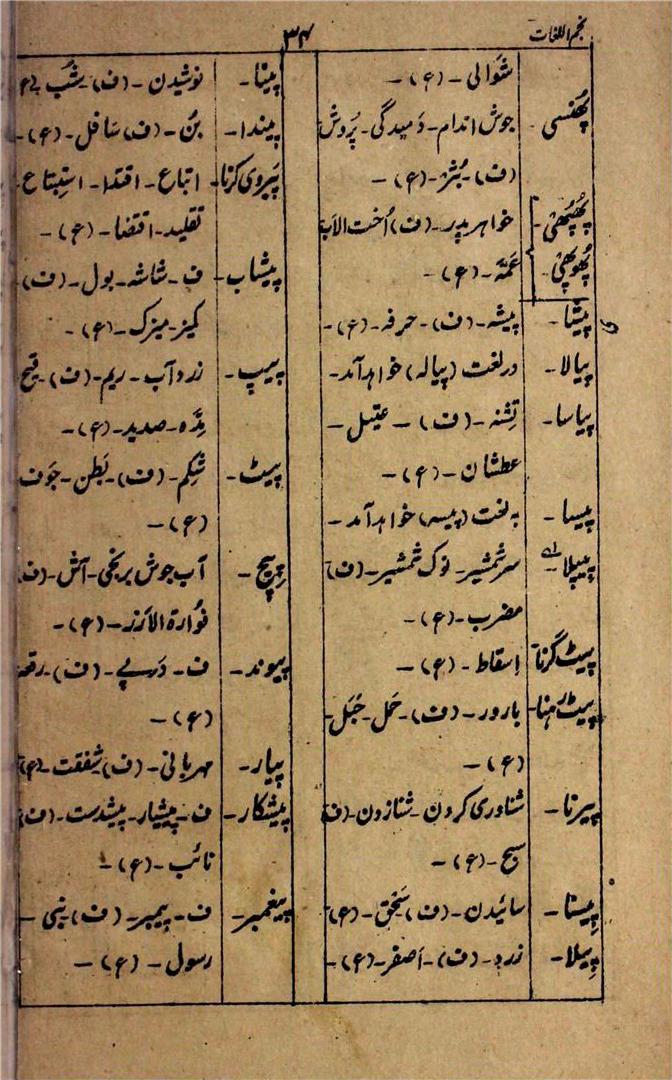 نجم اللغات
۳۴
شوالی - (ع) -
پُھنسی جوش اندام - دَمیدگی - پَروش
(ف) - بُثرَہ - (ع) -
پُھپُھی - خواہر پدر - (ف) اُخت الاب
پُھوپھی - عَمّہ - (ع) -
پیشا - پیشہ - (ف) - حرفہ - (ع) -
پیالا - در لغت (پیالہ) خواہد آمد -
پیاسا - تِشنہ - (ف) -
عطشان - (ع) -
پیسا - بہ لغت (پیسہ) خواہد آمد -
پیپلا - سر شمشیر - نوک شمشیر - (ف)
مضرب - (ع) -
پیٹ گرنا اِسقاط - (ع) -
پیٹ رہنا - بارور - (ف) - حَمل - حَبَل -
(ع) -
پیرنا - شناوری کردن - شنازدن - (ف)
سبح - (ع) -
پیسنا - سائیدن - (ف) سَحق - (ع)
پیلا - زرد - (ف) - اَصفر - (ع) -
پینا - نوشیدن - (ف) شُرب - (ع)
پیندا - بُن - (ف) سَافل - (ع) -
پَیروی کرنا - اتباع - اقتدا - اِستِتباع -
تقلید - اقتضا - (ع) -
پیشاب - ف - شاشہ - بول - (ف)
کمیز - میزک - (ع) -
پیپ - زرد آب - ریم - (ف) - قیح
مِدّہ - صدید - (ع) -
پیٹ - شِکَم - (ف) - بَطن - جَوف
(ع) -
پیچ - آب جوش برنجی - آش - (ف)
فُوارة الاَرز - (ع) -
پیوند - ف - دَرپے - (ف) - رقعہ
(ع) -
پیار - مہربانی - (ف) شَفقت - (ع)
پیشکار - ف - پیشیار - پیشدست - (ف)
نائب - (ع) -
پیغمبر - ف - پیمبر - (ف) نبی -
رسول - (ع) -